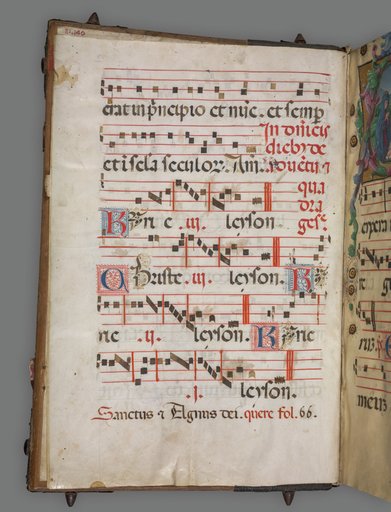 erat in p̃ncipio et nũc. et semp̲
In dñicis
diebus de
et ĩ scl̃a seculoꝝ. Am̃.
aduẽtu ⁊
qua
dra
Kyri e .iii. leyson.
ges̃.
Christe .iii. leyson. Ky
rie .ii. leyson. Kyrie
.i. leyson.
Sanctus ⁊ Agnus dei. quere fol. 66.